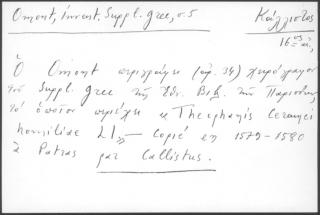 Omont, Invent. Suppl. grec, σ. 5 Κάλλιστος
16ος αἰ.
Ὁ Omont περιγράφει (ἀρ. 34) χειρόγραφον
τοῦ Suppl. grec τῆς Ἐθν. Βιβ. τῆς Παρισίων,
τὸ ὁποῖον περιέχει « Theophanis Ceramei
homiliae LI, — copié en 1579-1580
à Patras par Callistus.